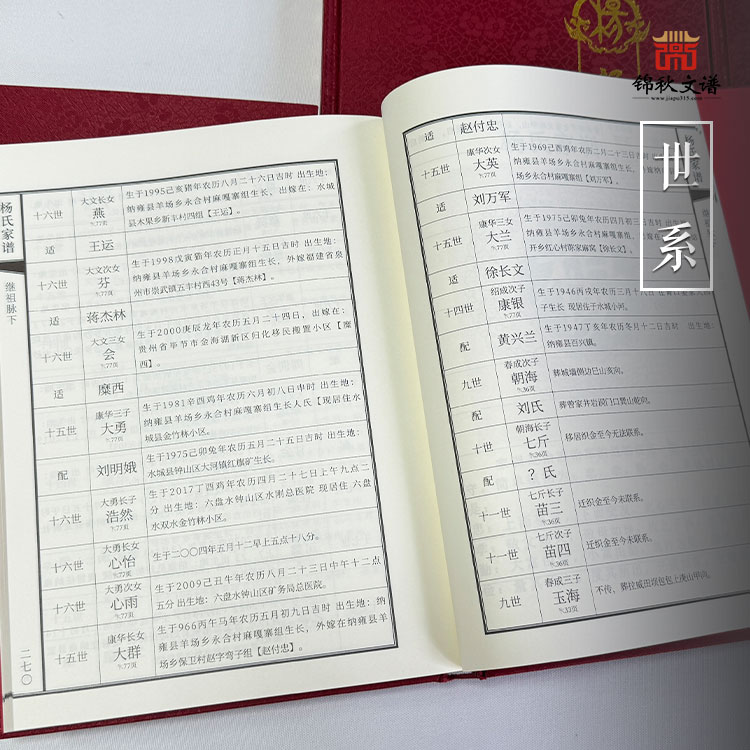 杨氏家谱
继祖脉下
二七〇
十六世
大文长女
燕
9:77页
生于1995己亥猪年农历八月二十六日吉时 出生地:
纳雍县羊场乡永合村麻嘎寨组生长、出嫁在: 水城
县木果乡新丰村四组【王运】。
适
王运
十六世
大文次女
芬
9:77页
生于1998戊寅猪年农历正月十五日吉时 出生地:
纳雍县羊场乡永合村麻嘎寨组生长, 外嫁福建省泉
州市崇武镇五丰村西43号【蒋杰林】。
适
蒋杰林
十六世
大文三女
会
9:77页
生于2000庚辰龙年农历五月二十四日, 出嫁在:
贵州省毕节市金海湖新区归化移民搬置小区【糜
西】。
适
糜西
十五世
康华三子
大勇
9:77页
生于1981辛酉鸡年农历六月初八日申时 出生地:
纳雍县羊场乡永合村麻嘎寨组生长人氏【现居住水
城县金竹林小区。
配
刘明娥
生于1975己卯兔年农历五月二十五日吉时 出生地:
水城县钟山区大河镇红旗矿生长。
十六世
大勇长子
浩然
9:77页
生于2017丁酉鸡年农历四月二十七日上午九点二
分 出生地: 六盘水钟山区水刚总医院 现居住 六盘
水双水金竹林小区。
十六世
大勇长女
心怡
9:77页
生于二〇〇四年五月十二早上五点十八分。
十六世
大勇次女
心雨
9:77页
生于2009己丑牛年农历八月二十三日中午十二点
五分 出生地: 六盘水钟山区矿务局总医院。
十五世
康华长女
大群
9:77页
生于966丙午马年农历五月初九日吉时 出生地: 纳
雍县羊场乡永合村麻嘎寨组生长, 外嫁在纳雍县羊
场乡保卫村赵字弯子组【赵付忠】。
适
赵付忠
十五世
康华次女
大英
9:77页
生于1969己酉鸡年农历二月二十三日吉
纳雍县羊场乡永合村麻嘎寨组生长、
县羊场乡永合村麻嘎寨组【刘万军】。
适
刘万军
十五世
康华三女
大兰
9:77页
生于1975己卯兔年农历四月初三日吉时
纳雍县羊场乡永合村麻嘎寨组生长、
开乡红心村陈家麻窝【徐长文】。
适
徐长文
十四世
绍成次子
康银
9:77页
生于1946丙戌年农历三月十八
子生长 现居住于水城小河。
配
黄兴兰
生于1947丁亥年农历冬月十二日吉时 出生地:
纳雍县百兴镇。
九世
春成次子
朝海
9:36页
葬城墙侧边巳山亥向。
配
刘氏
葬曾家井岩洞门口巽山乾向。
十世
朝海长子
七斤
9:36页
移居织金至今无法联系。
配
?氏
十一世
七斤长子
苗三
9:36页
迁织金至今未联系。
十一世
七斤次子
苗四
9:36页
迁织金至今未联系。
九世
春成三子
玉海
9:33页
不传, 葬拉威田坝包包上庚山甲向。
锦秋文谱
www.jiapu315.com
世系